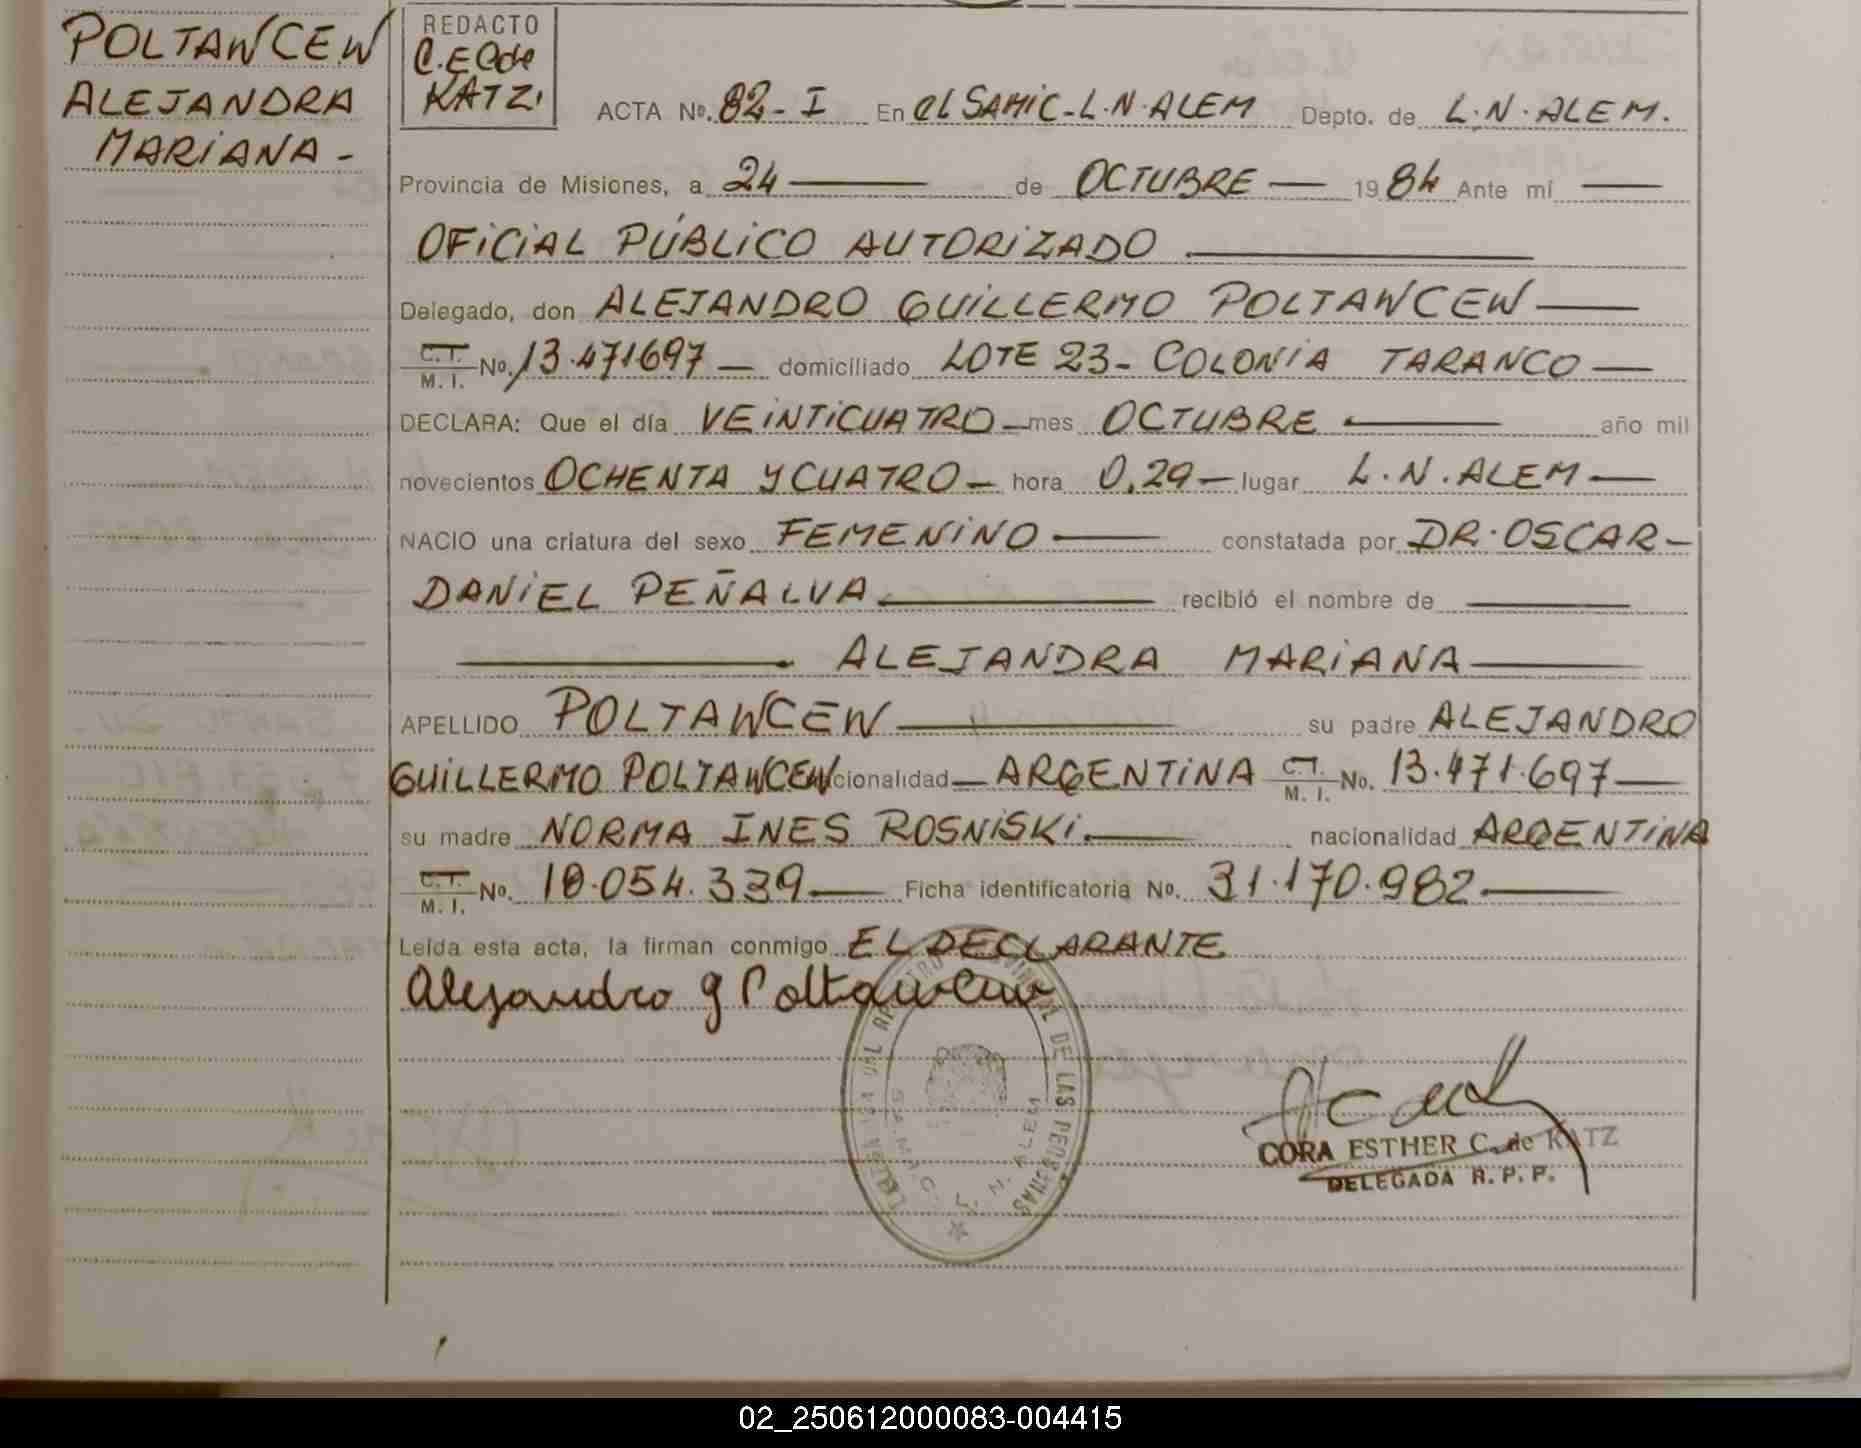 POLTAWCEW
ALEJANDRA
MARIANA -
REDACTO
C.E.C de
KATZ.
ACTA No. 82 - I En el SAMIC - L.N. ALEM Depto. de L.N. ALEM.
Provincia de Misiones, a 24 — de OCTUBRE — 1984 Ante mí —
OFICIAL PÚBLICO AUTORIZADO —
Delegado, don ALEJANDRO GUILLERMO POLTAWCEW —
C.I. / M. I. No. 13.471697 — domiciliado LOTE 23 - COLONIA TARANCO —
DECLARA: Que el día VEINTICUATRO — mes OCTUBRE — año mil
novecientos OCHENTA Y CUATRO — hora 0,29 — lugar L.N. ALEM —
NACIO una criatura del sexo FEMENINO — constatada por DR. OSCAR -
DANIEL PEÑALVA — recibió el nombre de —
— ALEJANDRA MARIANA —
APELLIDO POLTAWCEW — su padre ALEJANDRO
GUILLERMO POLTAWCEW cionalidad — ARGENTINA C.I. / M. I. No. 13.471.697 —
su madre NORMA INES ROSNISKI. — nacionalidad ARGENTINA
C.I. / M. I. No. 18.054.339 — Ficha identificatoria No. 31.170.982 —
Leída esta acta, la firman conmigo EL DECLARANTE
Alejandro g Poltawcew
PROVINCIAL DE LAS PERSONAS
S.A.M.I.C. L. N. ALEM
CORA ESTHER C. de KATZ
DELEGADA R. P. P.
02_250612000083-004415